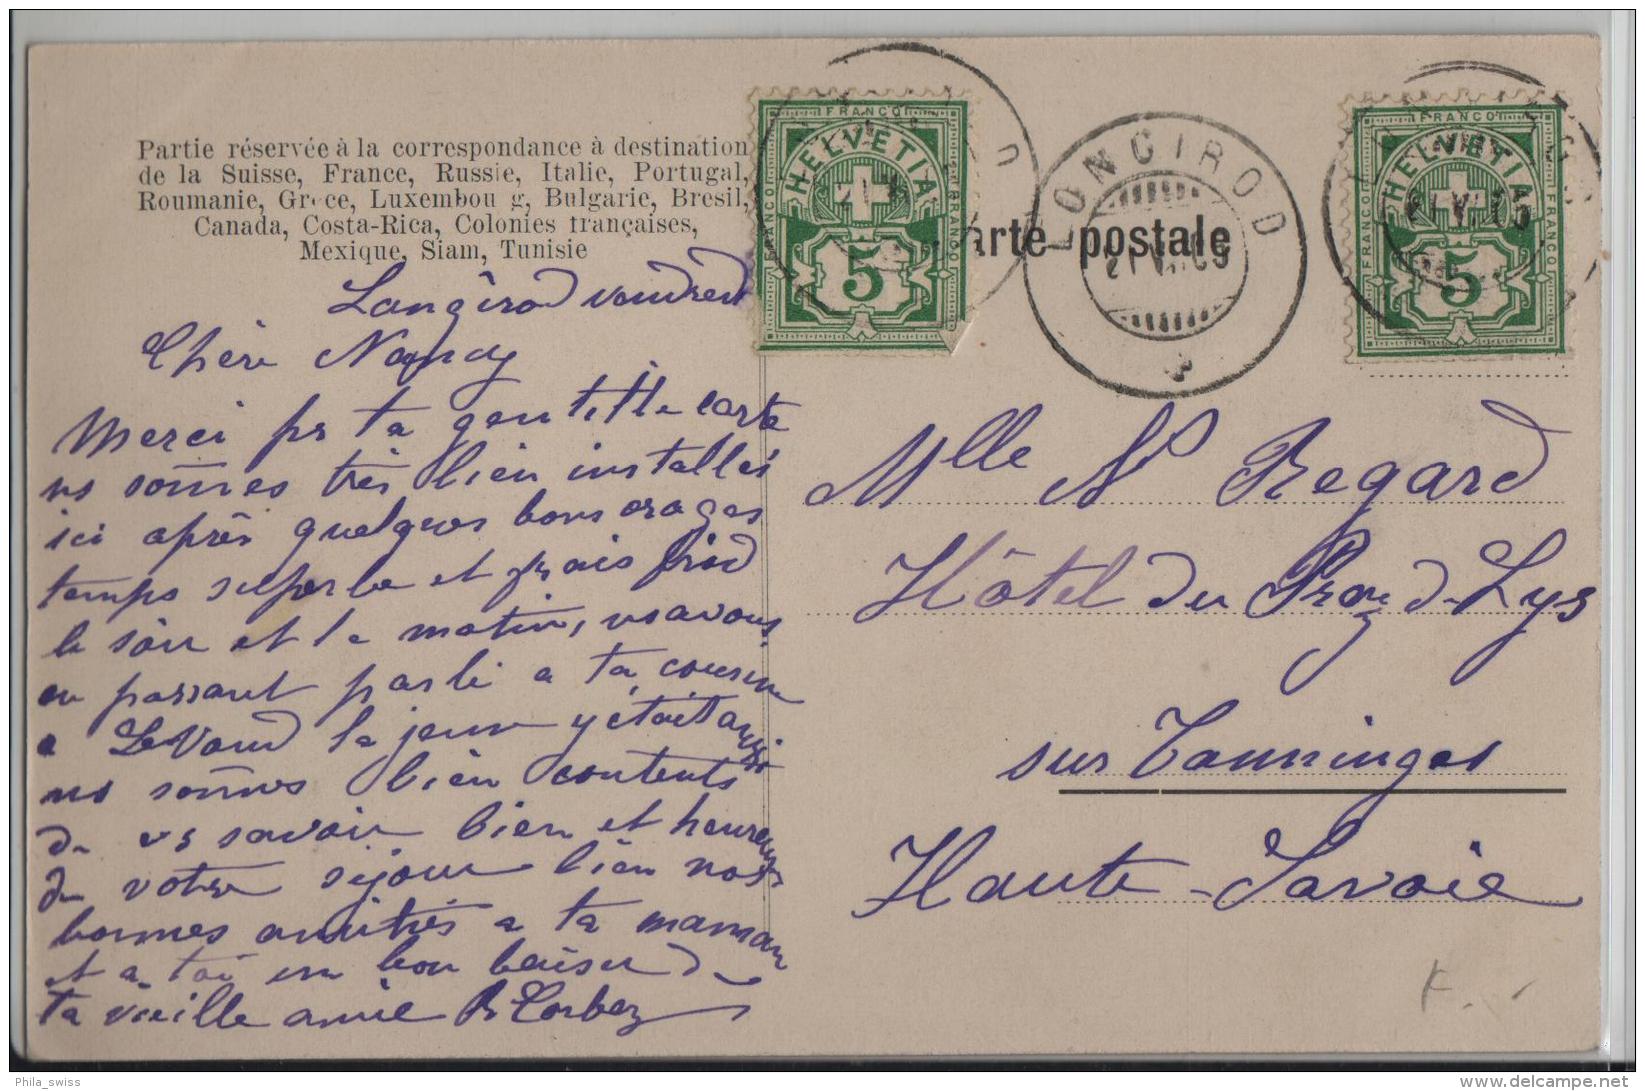 Partie réservée à la correspondance à destination
de la Suisse, France, Russie, Italie, Portugal,
Roumanie, Gr ce, Luxembou g, Bulgarie, Bresil,
Canada, Costa-Rica, Colonies françaises,
Mexique, Siam, Tunisie
arte postale
FRANCO
HELVETIA
FRANCO
5
LONGIROD
FRANCO
HELVETIA
FRANCO
FRANCO
5
Longirod vendredi
Chère Nancy
Merci pr ta gentille carte
ns sommes très bien installés
ici après quelques bons orages
temps superbe et frais froid
le soir et le matin, ns avons
en passant parlé a ta cousine
a LeVaud la jeune y était aussi
ns sommes bien contents
de vs savoir bien et heureuses
de votre séjour bien nos
bonnes amitiés a ta maman
et a toi un bon baiser de
ta vieille amie
Mlle N Regard
Hôtel du Praz d-Lys
sur Tanninges
Haute-Savoie
Phila_swiss
www.delcampe.net